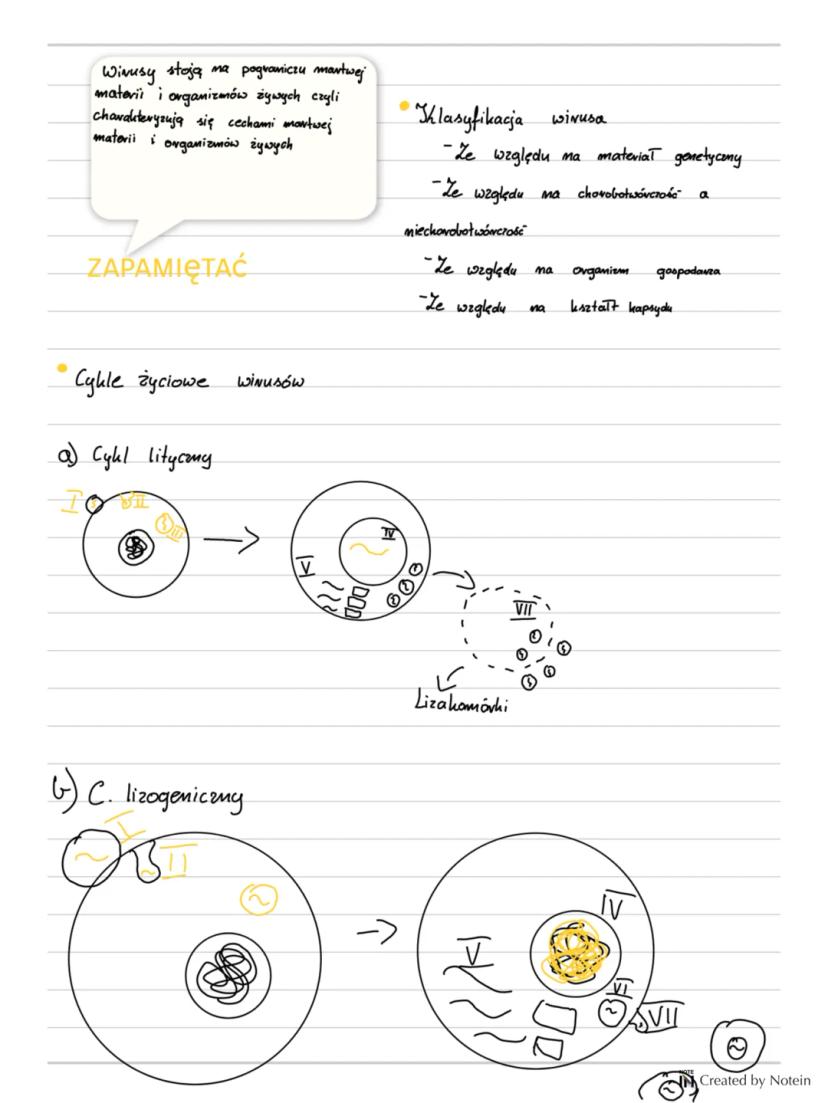 Wirusy stoją na pograniczu martwej
materii i organizmów żywych czyli
charakteryzują się cechami martwej
materii i organizmów żywych
ZAPAMIĘTAĆ
Klasyfikacja wirusa
- Ze względu na materiał genetyczny
- Ze względu na chorobotwórczość a
niechorobotwórczość
- Ze względu na organizm gospodarza
- Ze względu na kształt kapsydu
Cykle życiowe wirusów
a) Cykl lityczny
I
II
III
IV
V
VII
Lizakomórki
b) C. lizogeniczny
I
II
IV
V
VI
VII
NOTE
IN Created by Notein